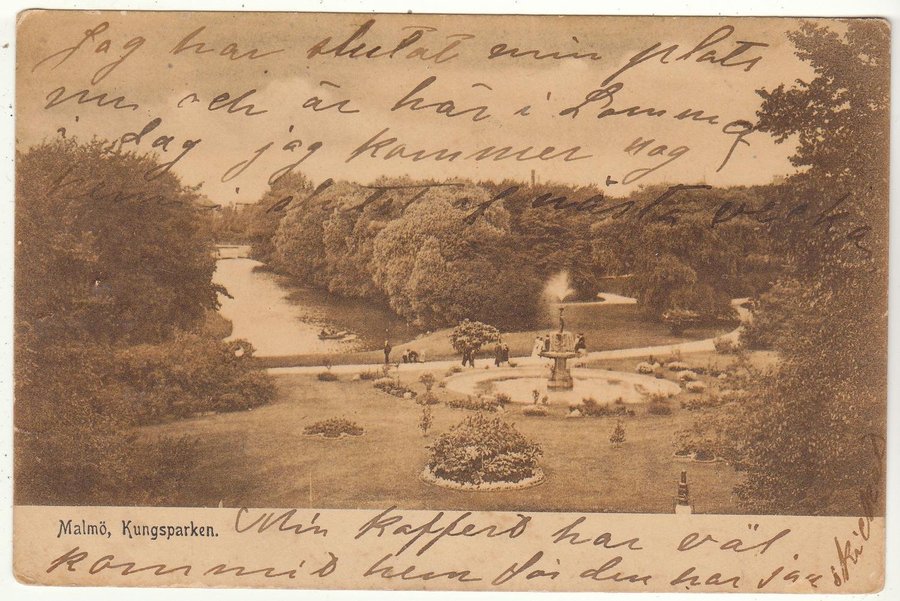 Jag har slutat min plats
nu och är här i Lomma
i dag jag kommer nog
hem i slutet af nästa vecka
Malmö, Kungsparken.
Min kofferd har väl
kommid hem för den har jag
skicked